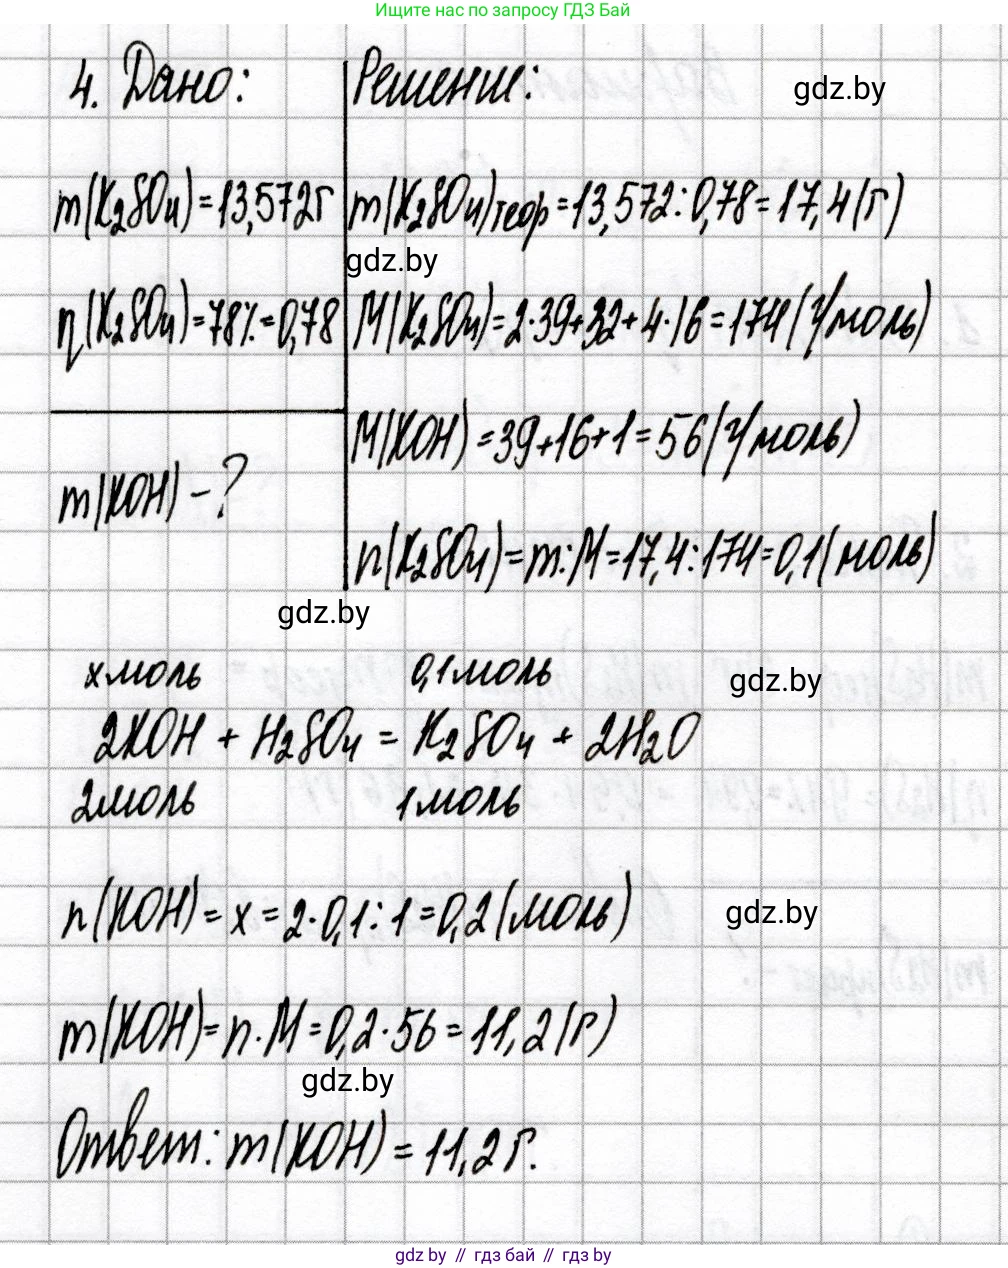 Ищите нас по запросу ГДЗ Бай
4. Дано:
Решение:
gdz.by
m(K₂SO₄) = 13,572г
m(K₂SO₄)теор = 13,572 : 0,78 = 17,4 (г)
gdz.by
η(K₂SO₄) = 78% = 0,78
M(K₂SO₄) = 2·39+32+4·16 = 174 (г/моль)
M(KOH) = 39+16+1 = 56 (г/моль)
m(KOH) - ?
n(K₂SO₄) = m:M = 17,4:174 = 0,1 (моль)
gdz.by
x моль 0,1 моль
gdz.by
2KOH + H₂SO₄ = K₂SO₄ + 2H₂O
2 моль 1 моль
n(KOH) = x = 2·0,1:1 = 0,2 (моль)
gdz.by
m(KOH) = n·M = 0,2·56 = 11,2 (г)
gdz.by
Ответ: m(KOH) = 11,2 г.
gdz by // гдз бай // гдз by